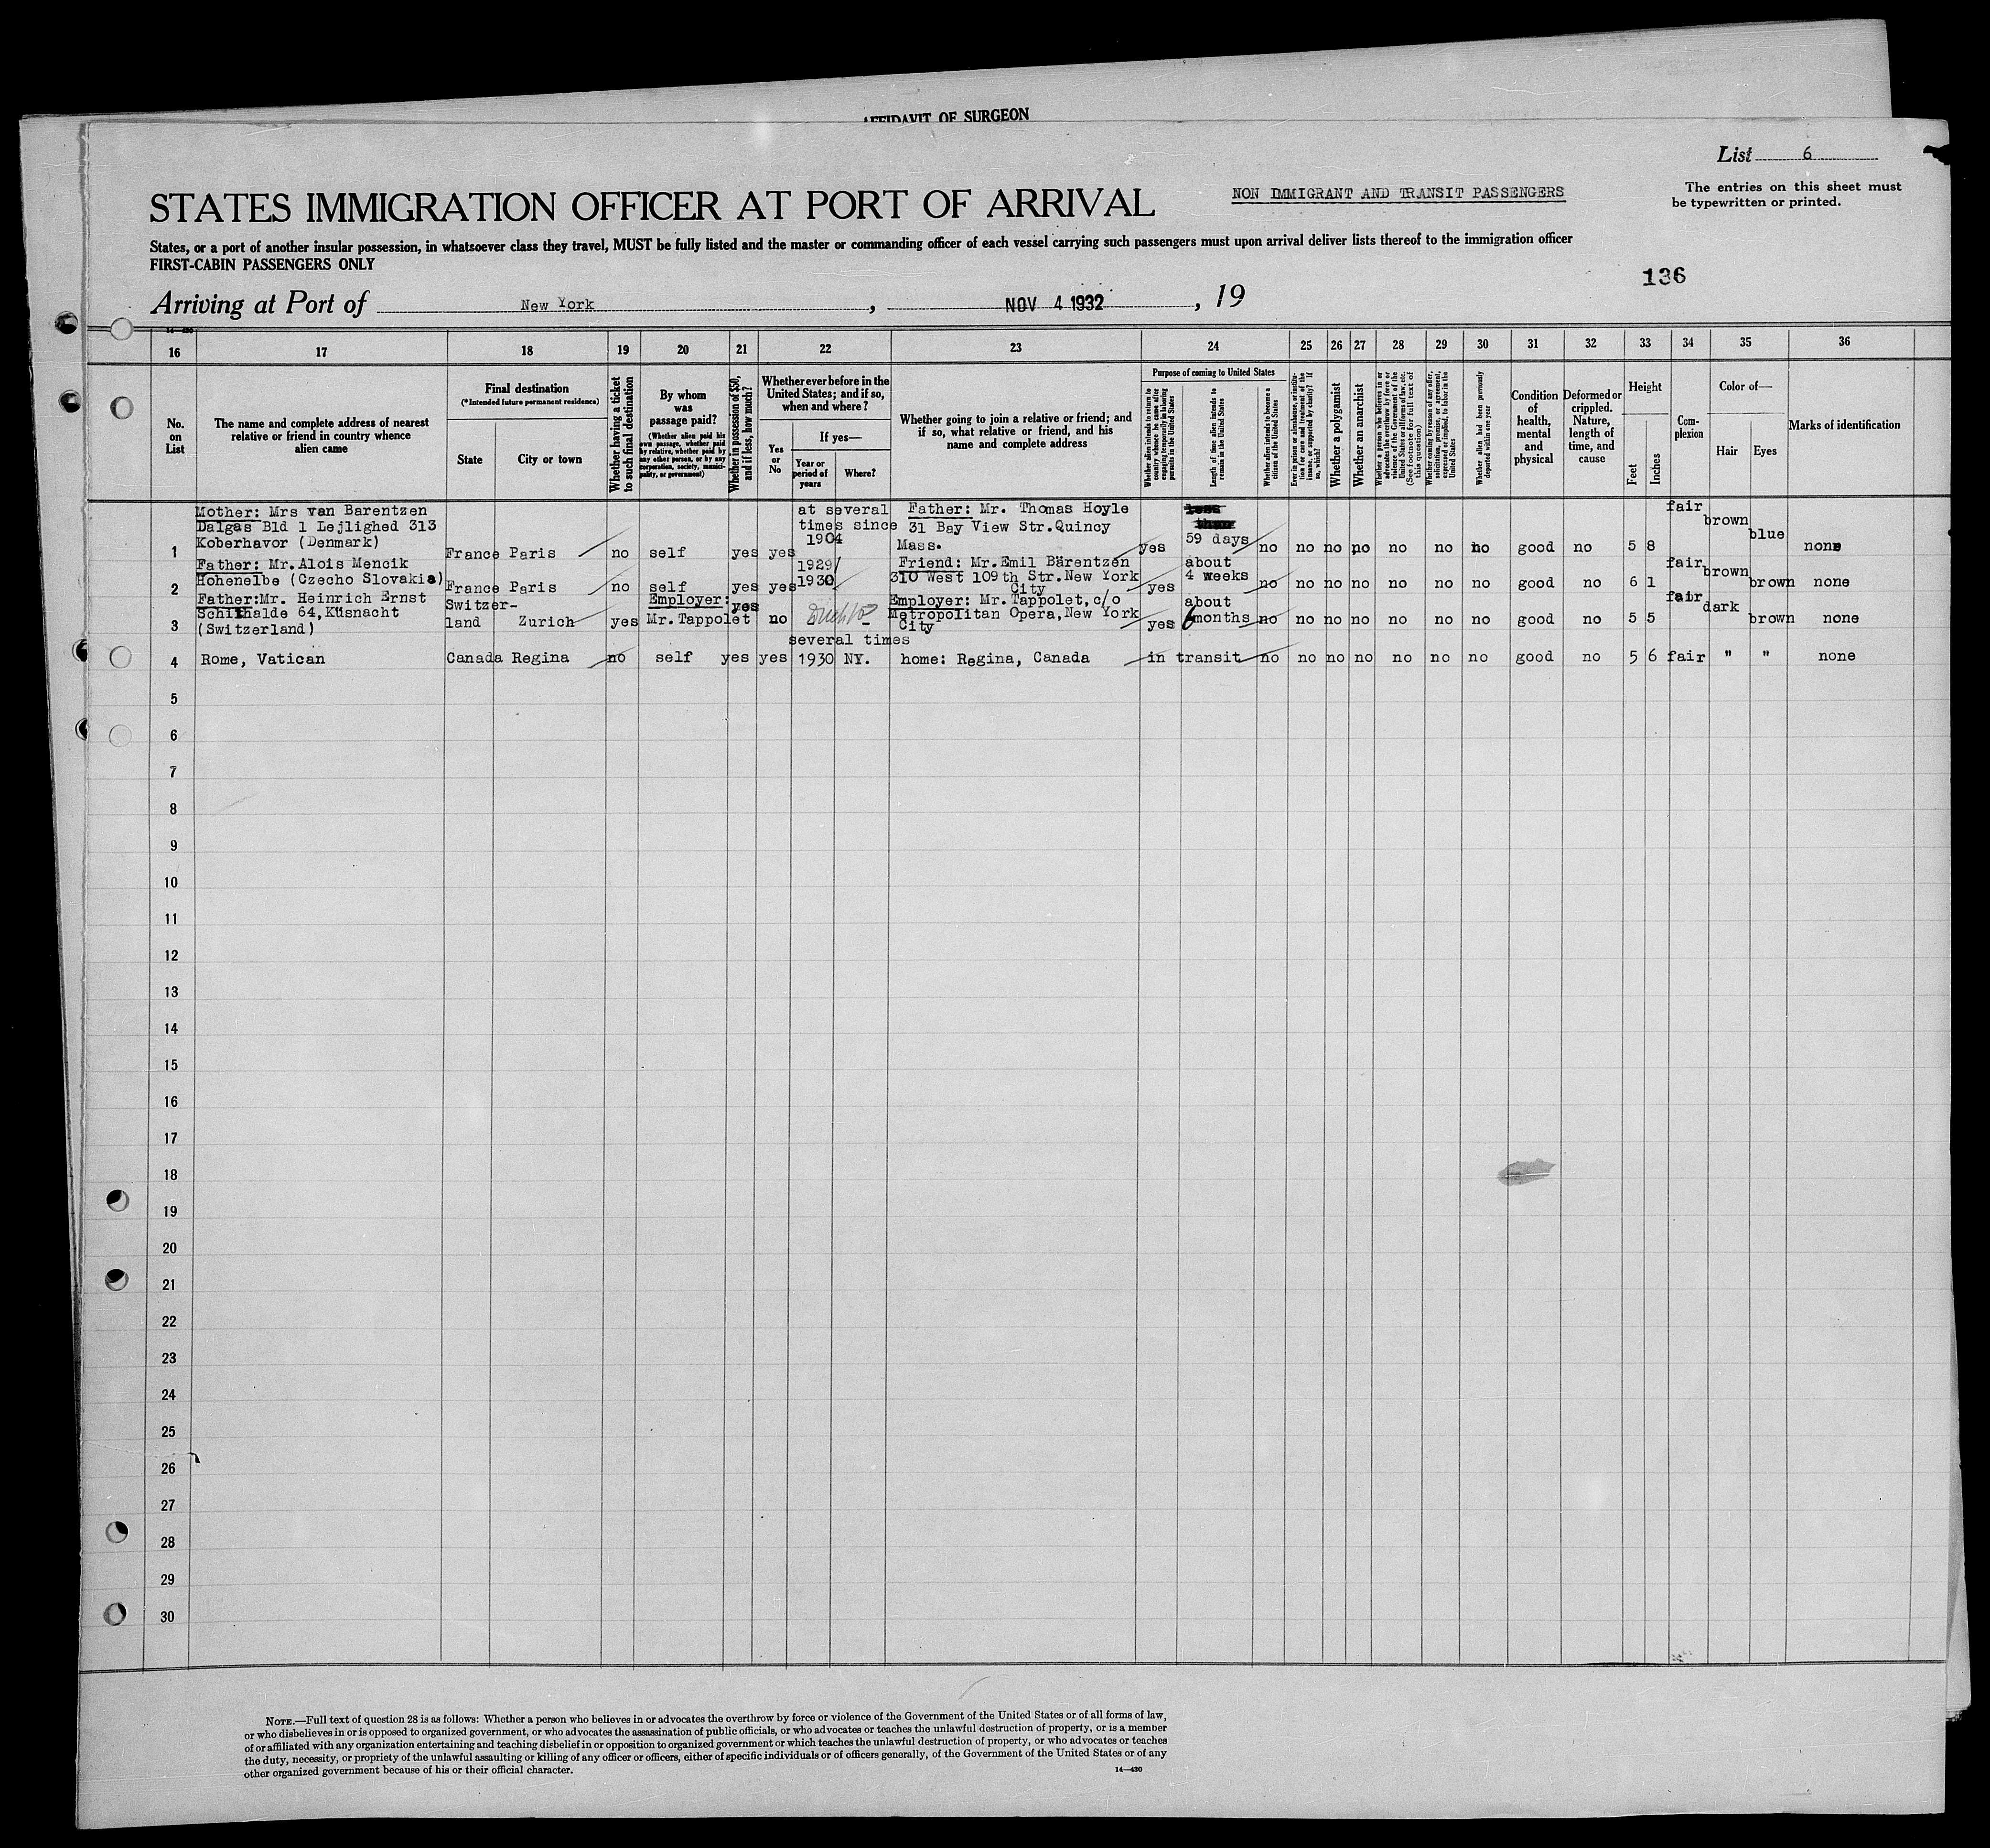 AFFIDAVIT OF SURGEON
List 6
STATES IMMIGRATION OFFICER AT PORT OF ARRIVAL
NON IMMIGRANT AND TRANSIT PASSENGERS
The entries on this sheet must
be typewritten or printed.
States, or a port of another insular possession, in whatsoever class they travel, MUST be fully listed and the master or commanding officer of each vessel carrying such passengers must upon arrival deliver lists thereof to the immigration officer
FIRST-CABIN PASSENGERS ONLY
136
Arriving at Port of New York, NOV 4 1932, 19
14—430
16 17 18 19 20 21 22 23 24 25 26 27 28 29 30 31 32 33 34 35 36
No.
on
List
The name and complete address of nearest
relative or friend in country whence
alien came
Final destination
(*Intended future permanent residence)
State
City or town
Whether having a ticket
to such final destination
By whom
was
passage paid?
(Whether alien paid his
own passage, whether paid
by relative, whether paid by
any other person, or by any
corporation, society, munici-
pality, or government)
Whether in possession of $50,
and if less, how much?
Whether ever before in the
United States; and if so,
when and where?
Yes
or
No
If yes—
Year or
period of
years
Where?
Whether going to join a relative or friend; and
if so, what relative or friend, and his
name and complete address
Purpose of coming to United States
Whether alien intends to return to
country whence he came after
engaging temporarily in laboring
pursuits in the United States
Length of time alien intends to
remain in the United States
Whether alien intends to become a
citizen of the United States
Ever in prison or almshouse, or institu-
tion for care and treatment of the
insane, or supported by charity? If
so, which?
Whether a polygamist
Whether an anarchist
Whether a person who believes in or
advocates the overthrow by force or
violence of the Government of the
United States or all forms of law, etc.
(See footnote for full text of
this question)
Whether coming by reason of any offer,
solicitation, promise, or agreement,
expressed or implied, to labor in the
United States
Whether alien had been previously
deported within one year
Condition
of
health,
mental
and
physical
Deformed or
crippled.
Nature,
length of
time, and
cause
Height
Feet
Inches
Com-
plexion
Color of—
Hair
Eyes
Marks of identification
Mother: Mrs van Barentzen
Dalgas Bld 1 Lejlighed 313
Koberhavor (Denmark)
1 France Paris no self yes yes
at several
times since
1904
Father: Mr. Thomas Hoyle
31 Bay View Str. Quincy
Mass.
yes 59 days no no no no no no no good no 5 8 fair brown blue none
Father: Mr. Alois Mencik
Hohenelbe (Czecho Slovakia)
2 France Paris no self yes yes
1929/
1930
Friend: Mr. Emil Bärentzen
310 West 109th Str. New York
City
yes
about
4 weeks
no no no no no no no good no 6 1 fair brown brown none
Father: Mr. Heinrich Ernst
Schithalde 64, Küsnacht
(Switzerland)
3 Switzer-
land Zurich yes
Employer:
Mr. Tappolet
yes no -
Employer: Mr. Tappolet, c/o
Metropolitan Opera, New York
City
yes
about
6 months
no no no no no no no good no 5 5 fair dark brown none
4 Rome, Vatican Canada Regina no self yes yes
several times
1930 NY.
home: Regina, Canada in transit no no no no no no no good no 5 6 fair " " none
5
6
7
8
9
10
11
12
13
14
15
16
17
18
19
20
21
22
23
24
25
26
27
28
29
30
NOTE.—Full text of question 28 is as follows: Whether a person who believes in or advocates the overthrow by force or violence of the Government of the United States or of all forms of law,
or who disbelieves in or is opposed to organized government, or who advocates the assassination of public officials, or who advocates or teaches the unlawful destruction of property, or is a member
of or affiliated with any organization entertaining and teaching disbelief in or opposition to organized government or which teaches the unlawful destruction of property, or who advocates or teaches
the duty, necessity, or propriety of the unlawful assaulting or killing of any officer or officers, either of specific individuals or of officers generally, of the Government of the United States or of any
other organized government because of his or their official character.
14—430